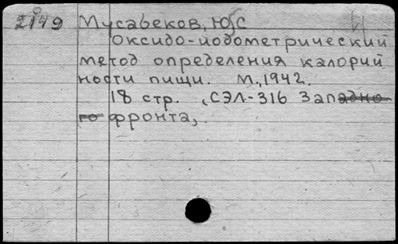 2149 Мусабеков, Ю. С
Оксидо-иодометрический
метод определения калорий
ности пищи. М., 1942.
18 стр. (СЭЛ-316 Западно
го фронта).